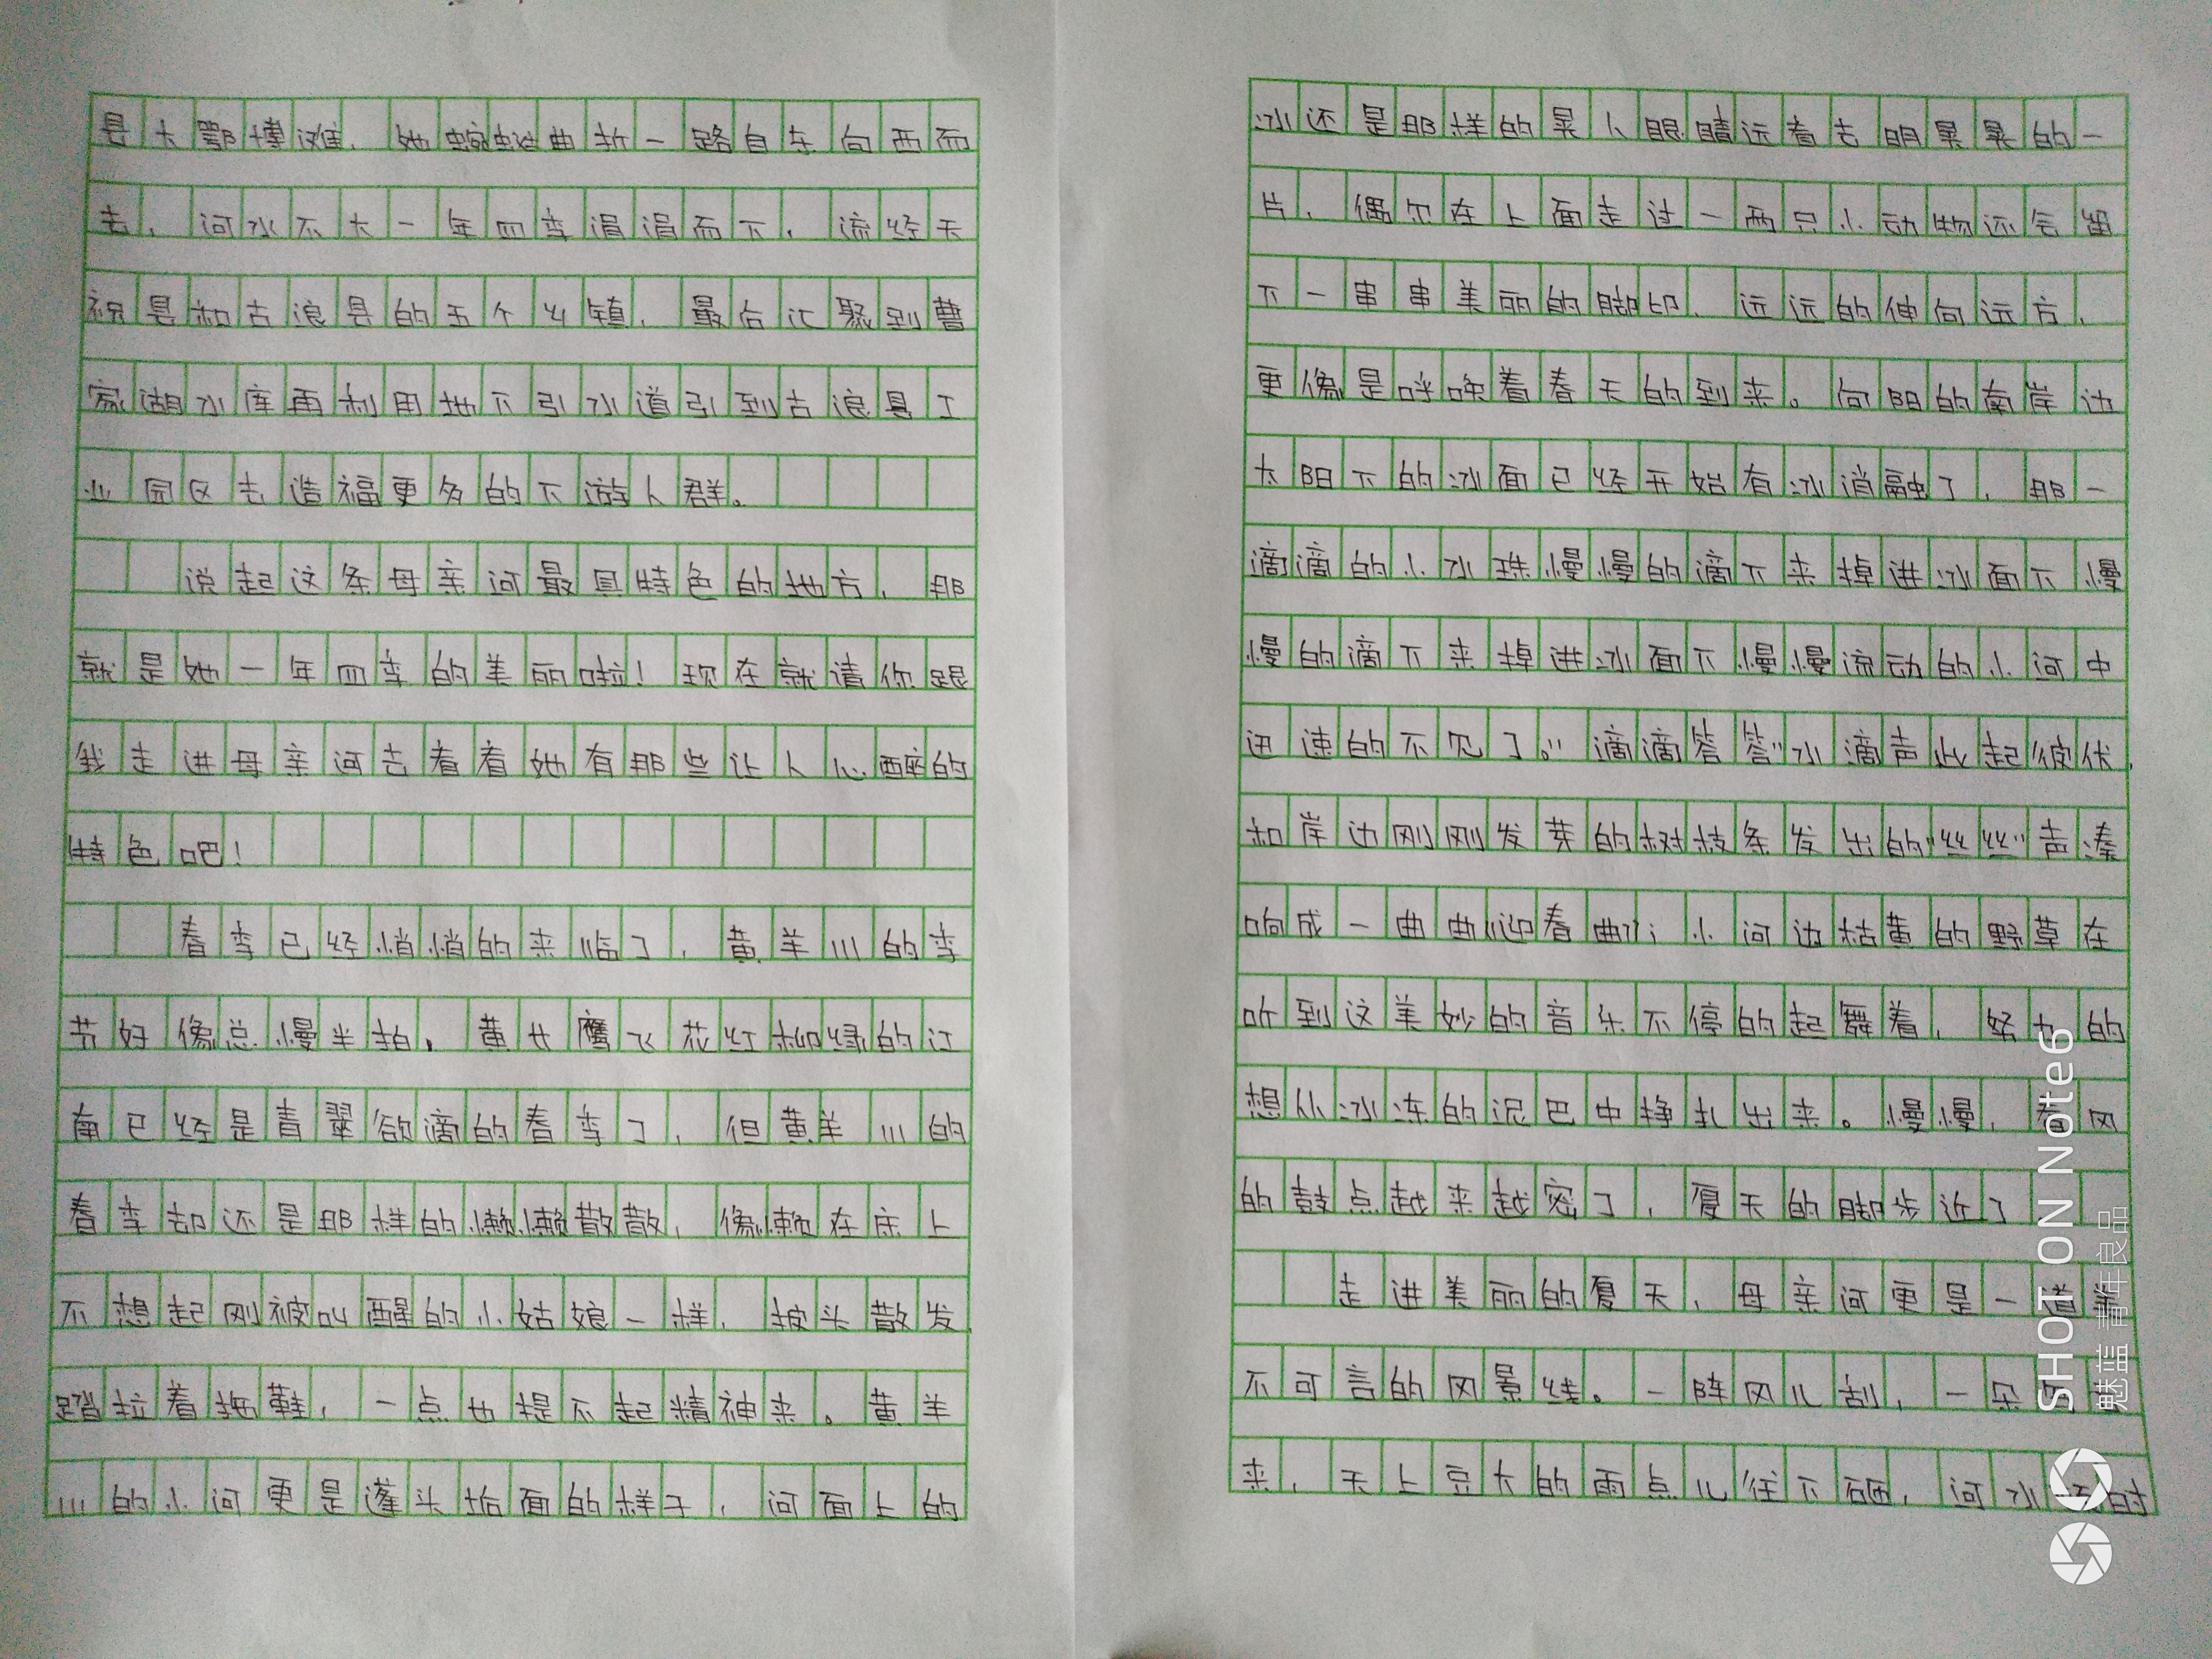 县大鄂博滩，她蜿蜒曲折一路自东向西而
去，河水不大一年四季涓涓而下，流经天
祝县和古浪县的五个乡镇，最后汇聚到曹
家湖水库再利用地下引水道引到古浪县工
业园区去造福更多的下游人群。
说起这条母亲河最具特色的地方，那
就是她一年四季的美丽啦！现在就请你跟
我走进母亲河去看看她有那些让人心醉的
特色吧！
春季已经悄悄的来临了，黄羊川的季
节好像总慢半拍，黄廿鹰飞花红柳绿的江
南已经是青翠欲滴的春季了，但黄羊川的
春季却还是那样的懒懒散散，像懒在床上
不想起刚被叫醒的小姑娘一样，披头散发
踏拉着拖鞋，一点也提不起精神来。黄羊
川的小河更是蓬头垢面的样子，河面上的
冰还是那样的晃人眼睛远看去明晃晃的一
片，偶尔在上面走过一两只小动物还会留
下一串串美丽的脚印，远远的伸向远方，
更像是呼唤着春天的到来。向阳的南岸边
太阳下的冰面已经开始有冰消融了，那一
滴滴的小水珠慢慢的滴下来掉进冰面下慢
慢的滴下来掉进冰面下慢慢流动的小河中
迅速的不见了。“滴滴答答”水滴声此起彼伏，
和岸边刚刚发芽的树枝条发出的“丝丝”声凑
响成一曲曲《迎春曲》；小河边枯黄的野草在
听到这美妙的音乐不停的起舞着，努力的
想从冰冻的泥巴中挣扎出来。慢慢，春风
的鼓点越来越密了，夏天的脚步近了
走进美丽的夏天，母亲河更是一道
不可言的风景线。一阵风儿刮，一朵
来，天上豆大的雨点儿往下砸，河水 时
SHOT ON Note6
魅蓝 青年良品